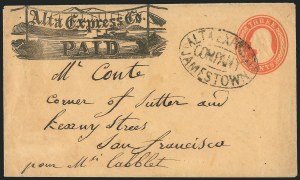 Alta Express Co.
PAID
ALTA EXPRESS
COMPANY
JAMESTOWN
THREE
Mr Conte
corner of Sutter and
Kearny Streets
San Francisco
pour Mr Cabblet